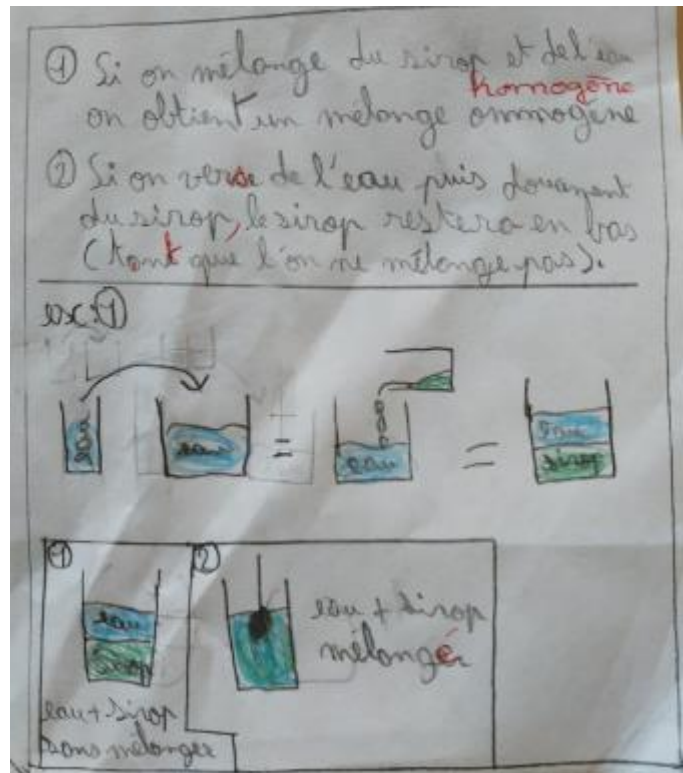 ① Si on mélange du sirop et de l'eau
homogène
on obtient un mélange ommogène
② Si on verse de l'eau puis doucement
du sirop, le sirop restera en bas
(tant que l'on ne mélange pas).
ex: ①
eau eau = eau = eau
sirop
① ②
eau eau + sirop
sirop mélangér
eau + sirop
sans mélanger